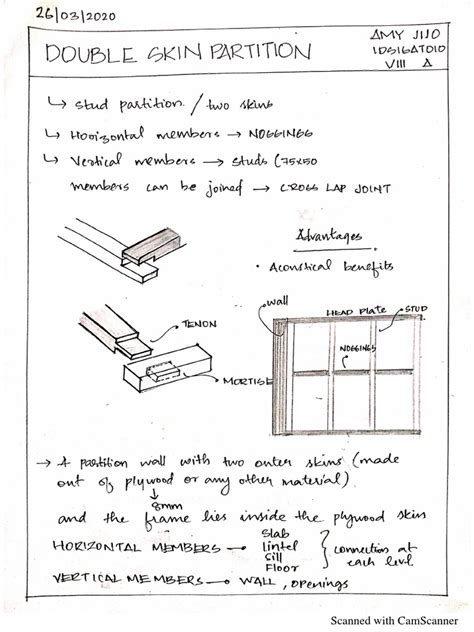 26/03/2020
AMY JIJO
1DS16AT010
VIII A
DOUBLE SKIN PARTITION
↳ Stud partition / two skins
↳ Horizontal members → NOGGINGS
↳ Vertical members → studs (75x50
members can be joined → CROSS LAP JOINT
Advantages
• Acoustical benefits
wall
HEAD Plate
STUD
TENON
NOGGINGS
MORTISE
→ A partition wall with two outer skins (made
out of plywood or any other material)
8mm
and the frame lies inside the plywood skin
HORIZONTAL MEMBERS → Slab
lintel
sill
Floor
connection at
each level
VERTICAL MEMBERS → WALL, openings
Scanned with CamScanner